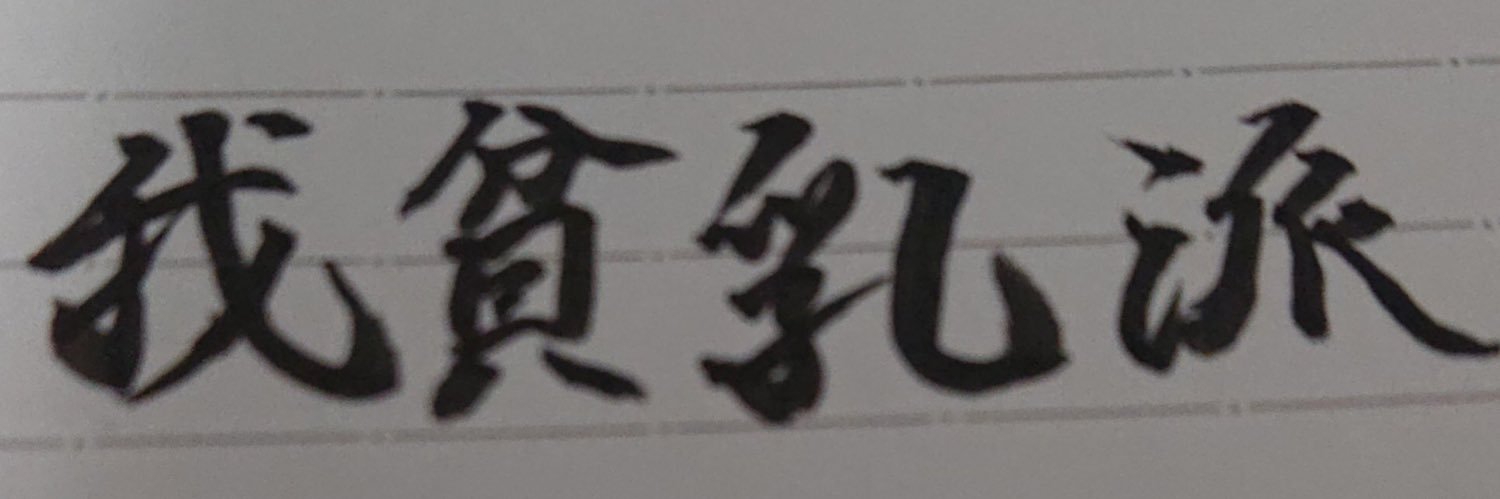 我貧乳派